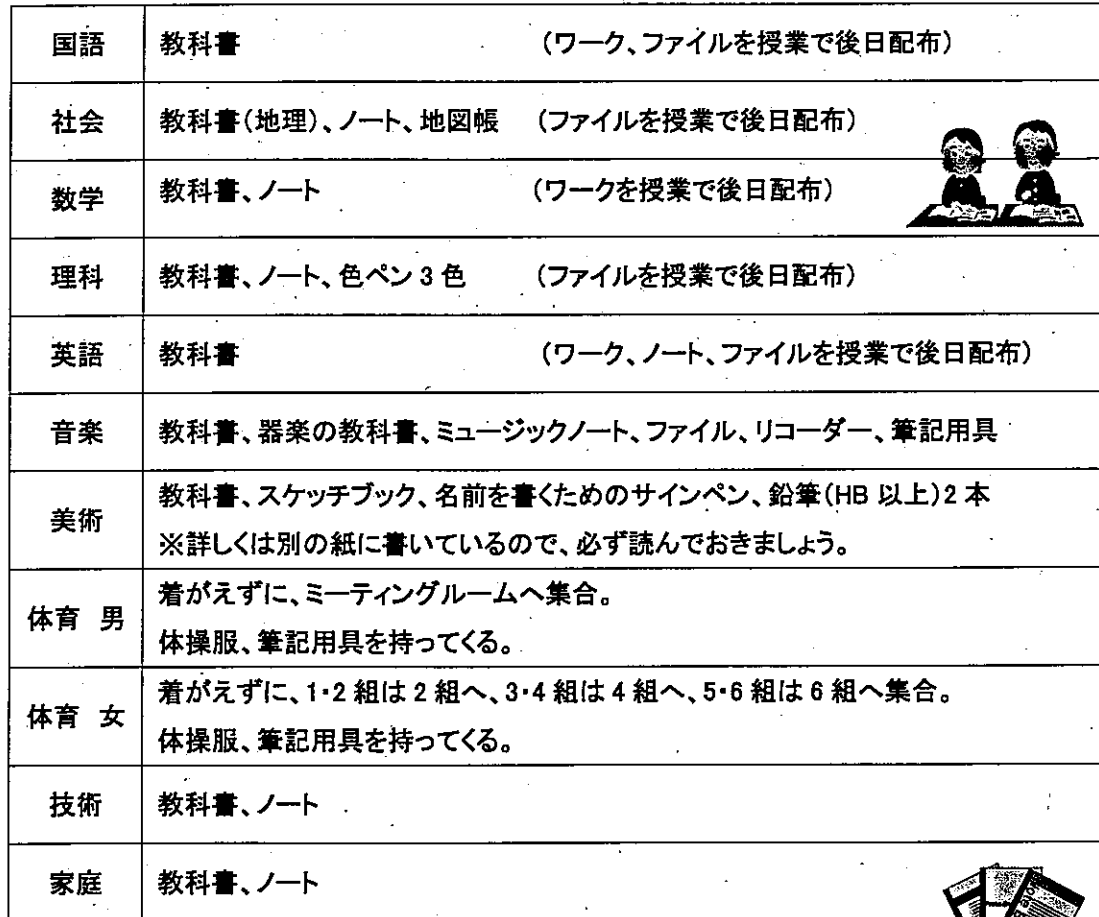 国語 教科書 (ワーク、ファイルを授業で後日配布)
社会 教科書(地理)、ノート、地図帳 (ファイルを授業で後日配布)
数学 教科書、ノート (ワークを授業で後日配布)
理科 教科書、ノート、色ペン3色 (ファイルを授業で後日配布)
英語 教科書 (ワーク、ノート、ファイルを授業で後日配布)
音楽 教科書、器楽の教科書、ミュージックノート、ファイル、リコーダー、筆記用具
美術 教科書、スケッチブック、名前を書くためのサインペン、鉛筆(HB以上)2本
※詳しくは別の紙に書いているので、必ず読んでおきましょう。
体育 男 着がえずに、ミーティングルームへ集合。
体操服、筆記用具を持ってくる。
体育 女 着がえずに、1・2組は2組へ、3・4組は4組へ、5・6組は6組へ集合。
体操服、筆記用具を持ってくる。
技術 教科書、ノート
家庭 教科書、ノート